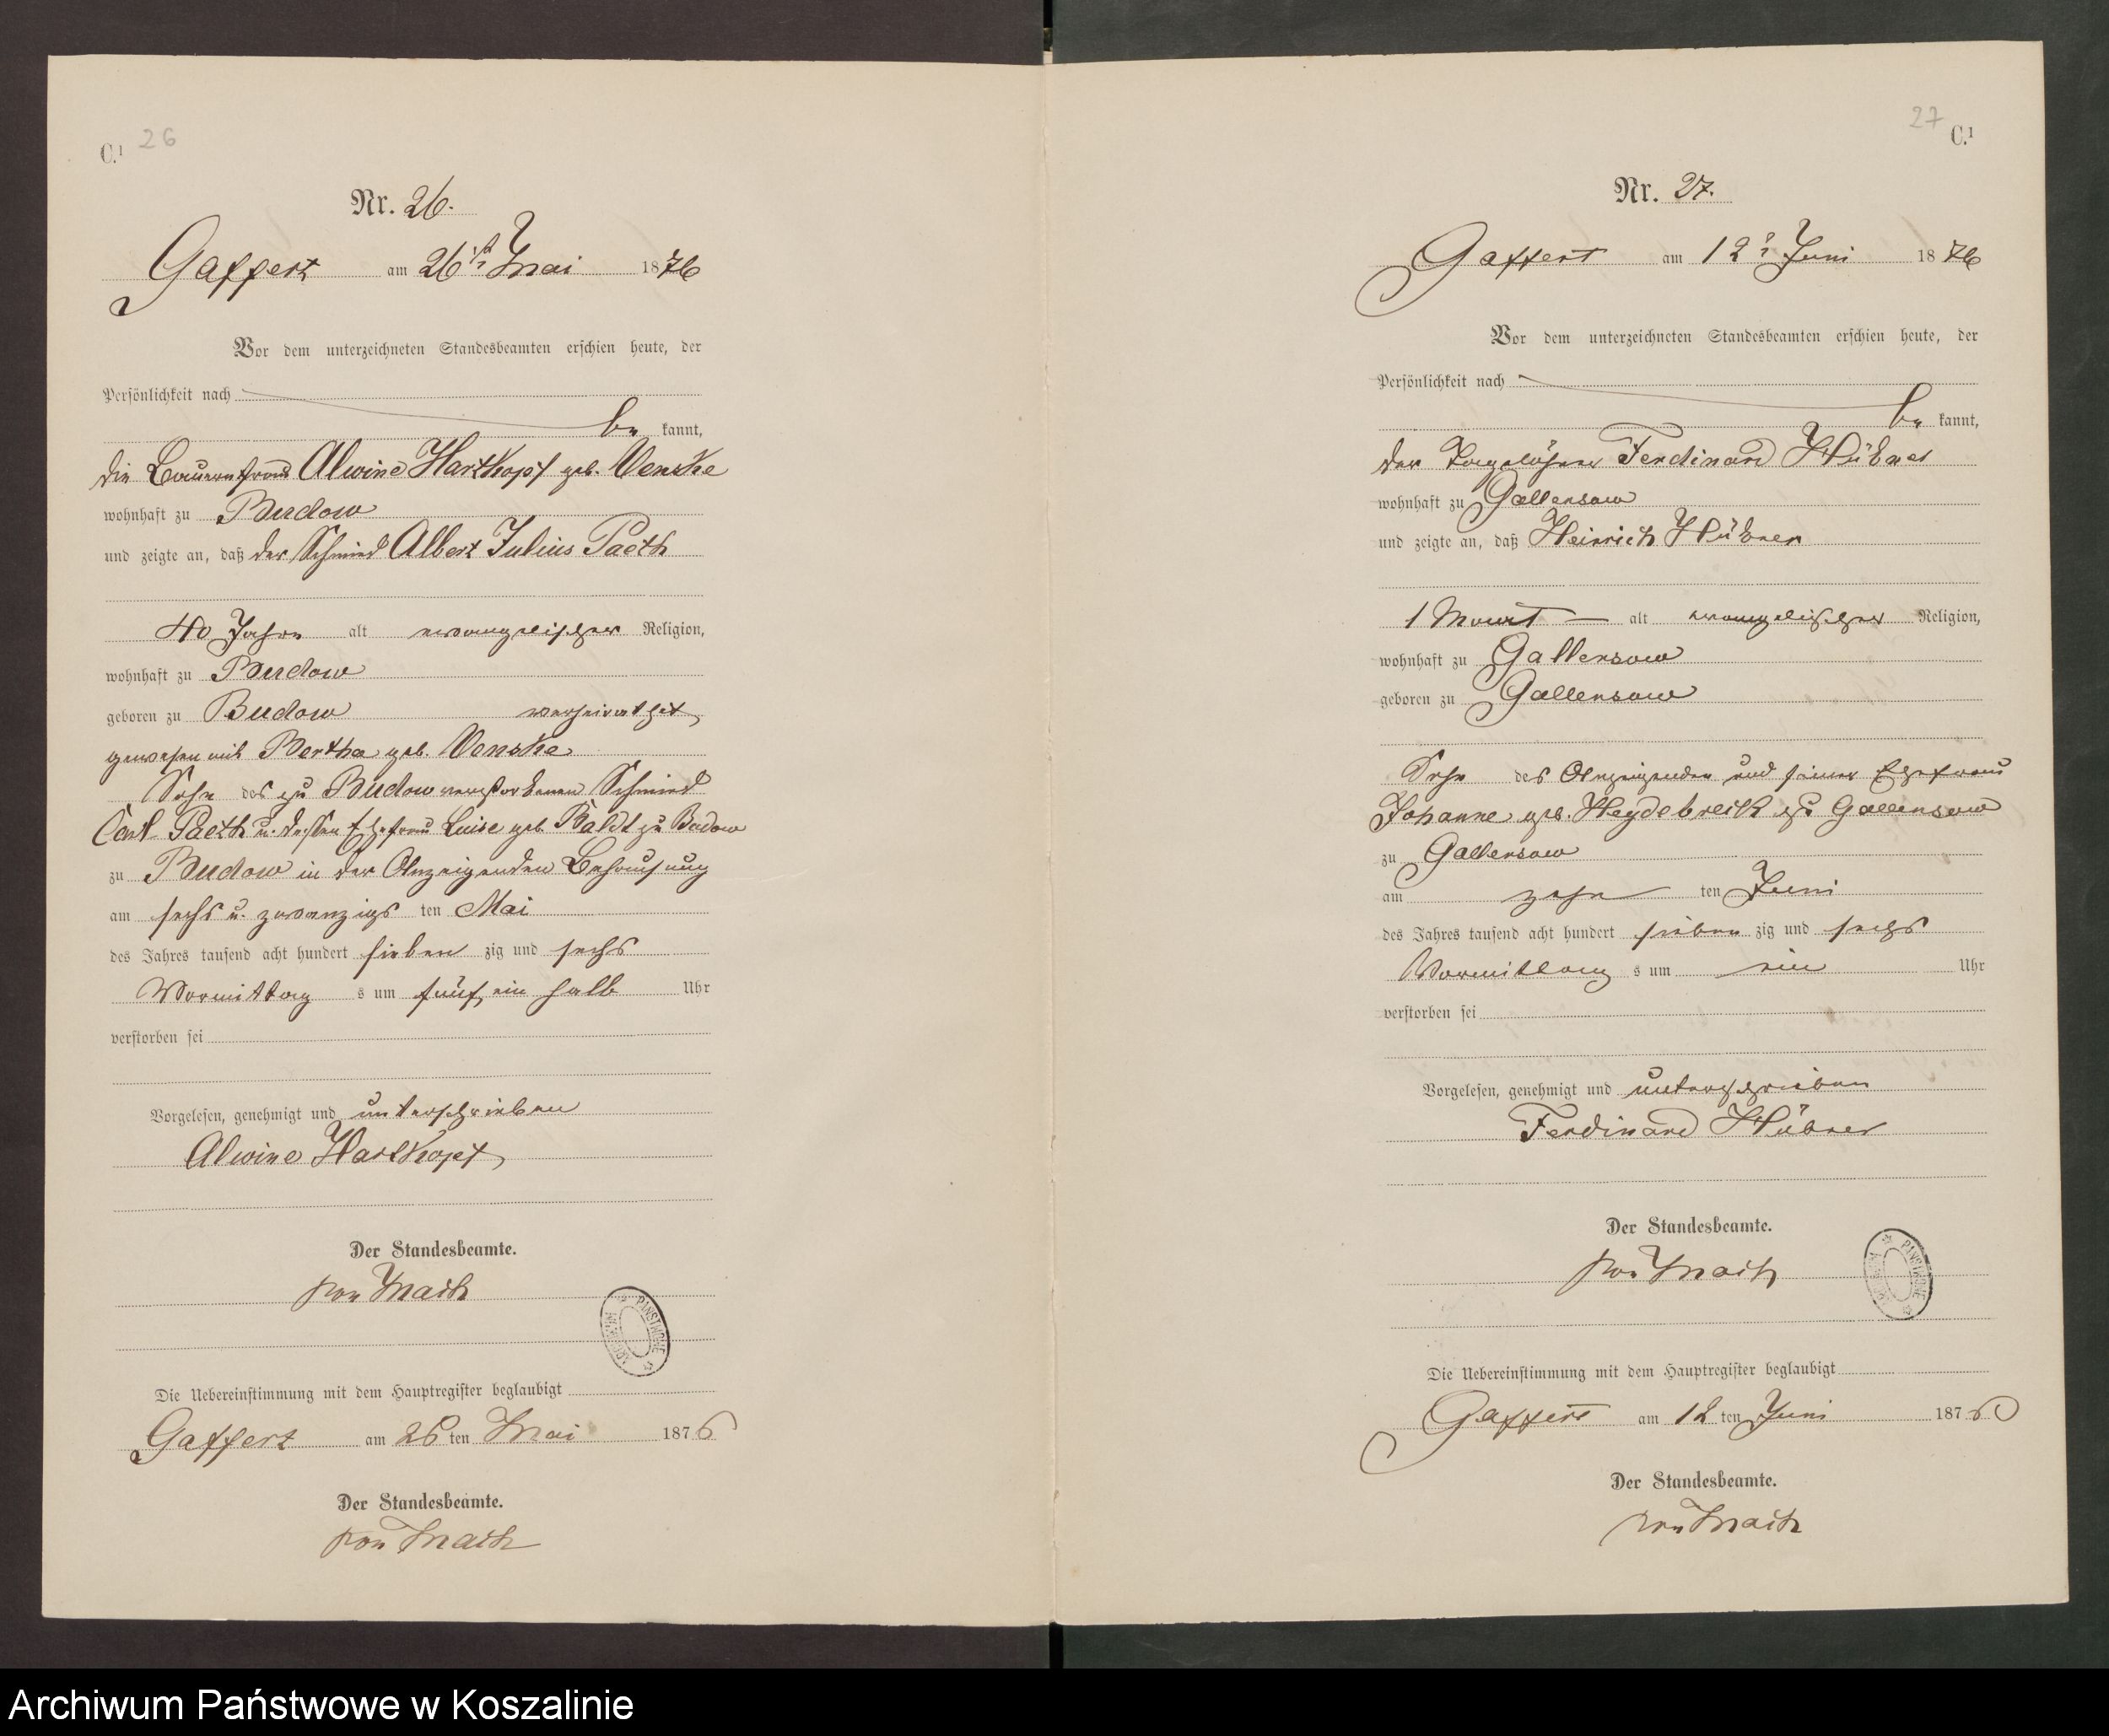 C.1 26
Nr. 26.
Gaffert am 26t. Mai 1876
Vor dem unterzeichneten Standesbeamten erschien heute, der
Persönlichkeit nach
be kannt,
die Bauernfrau Alwine Hartkopf geb. Venske
wohnhaft zu Budow
und zeigte an, daß der Schmied Albert Julius Paeth
40 Jahre alt evangelischer Religion,
wohnhaft zu Budow
geboren zu Budow verheirathet
gewesen mit Bertha geb. Venske
Sohn des zu Budow verstorbenen Schmied
Carl Paeth u. dessen Ehefrau Luise geb. Baldt zu Budow
zu Budow in der Anzeigenden Behausung
am sechs u. zwanzigs ten Mai
des Jahres tausend acht hundert sieben zig und sechs
Vormittag s um fünf ein halb Uhr
verstorben sei
Vorgelesen, genehmigt und unterschrieben
Alwine Hartkopf
Der Standesbeamte.
von
ARCHIWUM PAŃSTWOWE
Die Uebereinstimmung mit dem Hauptregister beglaubigt
Gaffert am 26 ten Mai 1876
Der Standesbeamte.
von
27 C.1
Nr. 27.
Gaffert am 12t. Juni 1876
Vor dem unterzeichneten Standesbeamten erschien heute, der
Persönlichkeit nach
be kannt,
der Tagelöhner Ferdinand Hübner
wohnhaft zu Gallensow
und zeigte an, daß Heinrich Hübner
1 Monat — alt evangelischer Religion,
wohnhaft zu Gallensow
geboren zu Gallensow
Sohn des Anzeigenden und seiner Ehefrau
Johanne geb. Heydebreck zu Gallensow
zu Gallensow
am zehn ten Juni
des Jahres tausend acht hundert sieben zig und sechs
Vormittag s um ein Uhr
verstorben sei
Vorgelesen, genehmigt und unterschrieben
Ferdinand Hübner
Der Standesbeamte.
von
ARCHIWUM PAŃSTWOWE
Die Uebereinstimmung mit dem Hauptregister beglaubigt
Gaffert am 12 ten Juni 1876
Der Standesbeamte.
von
Archiwum Państwowe w Koszalinie